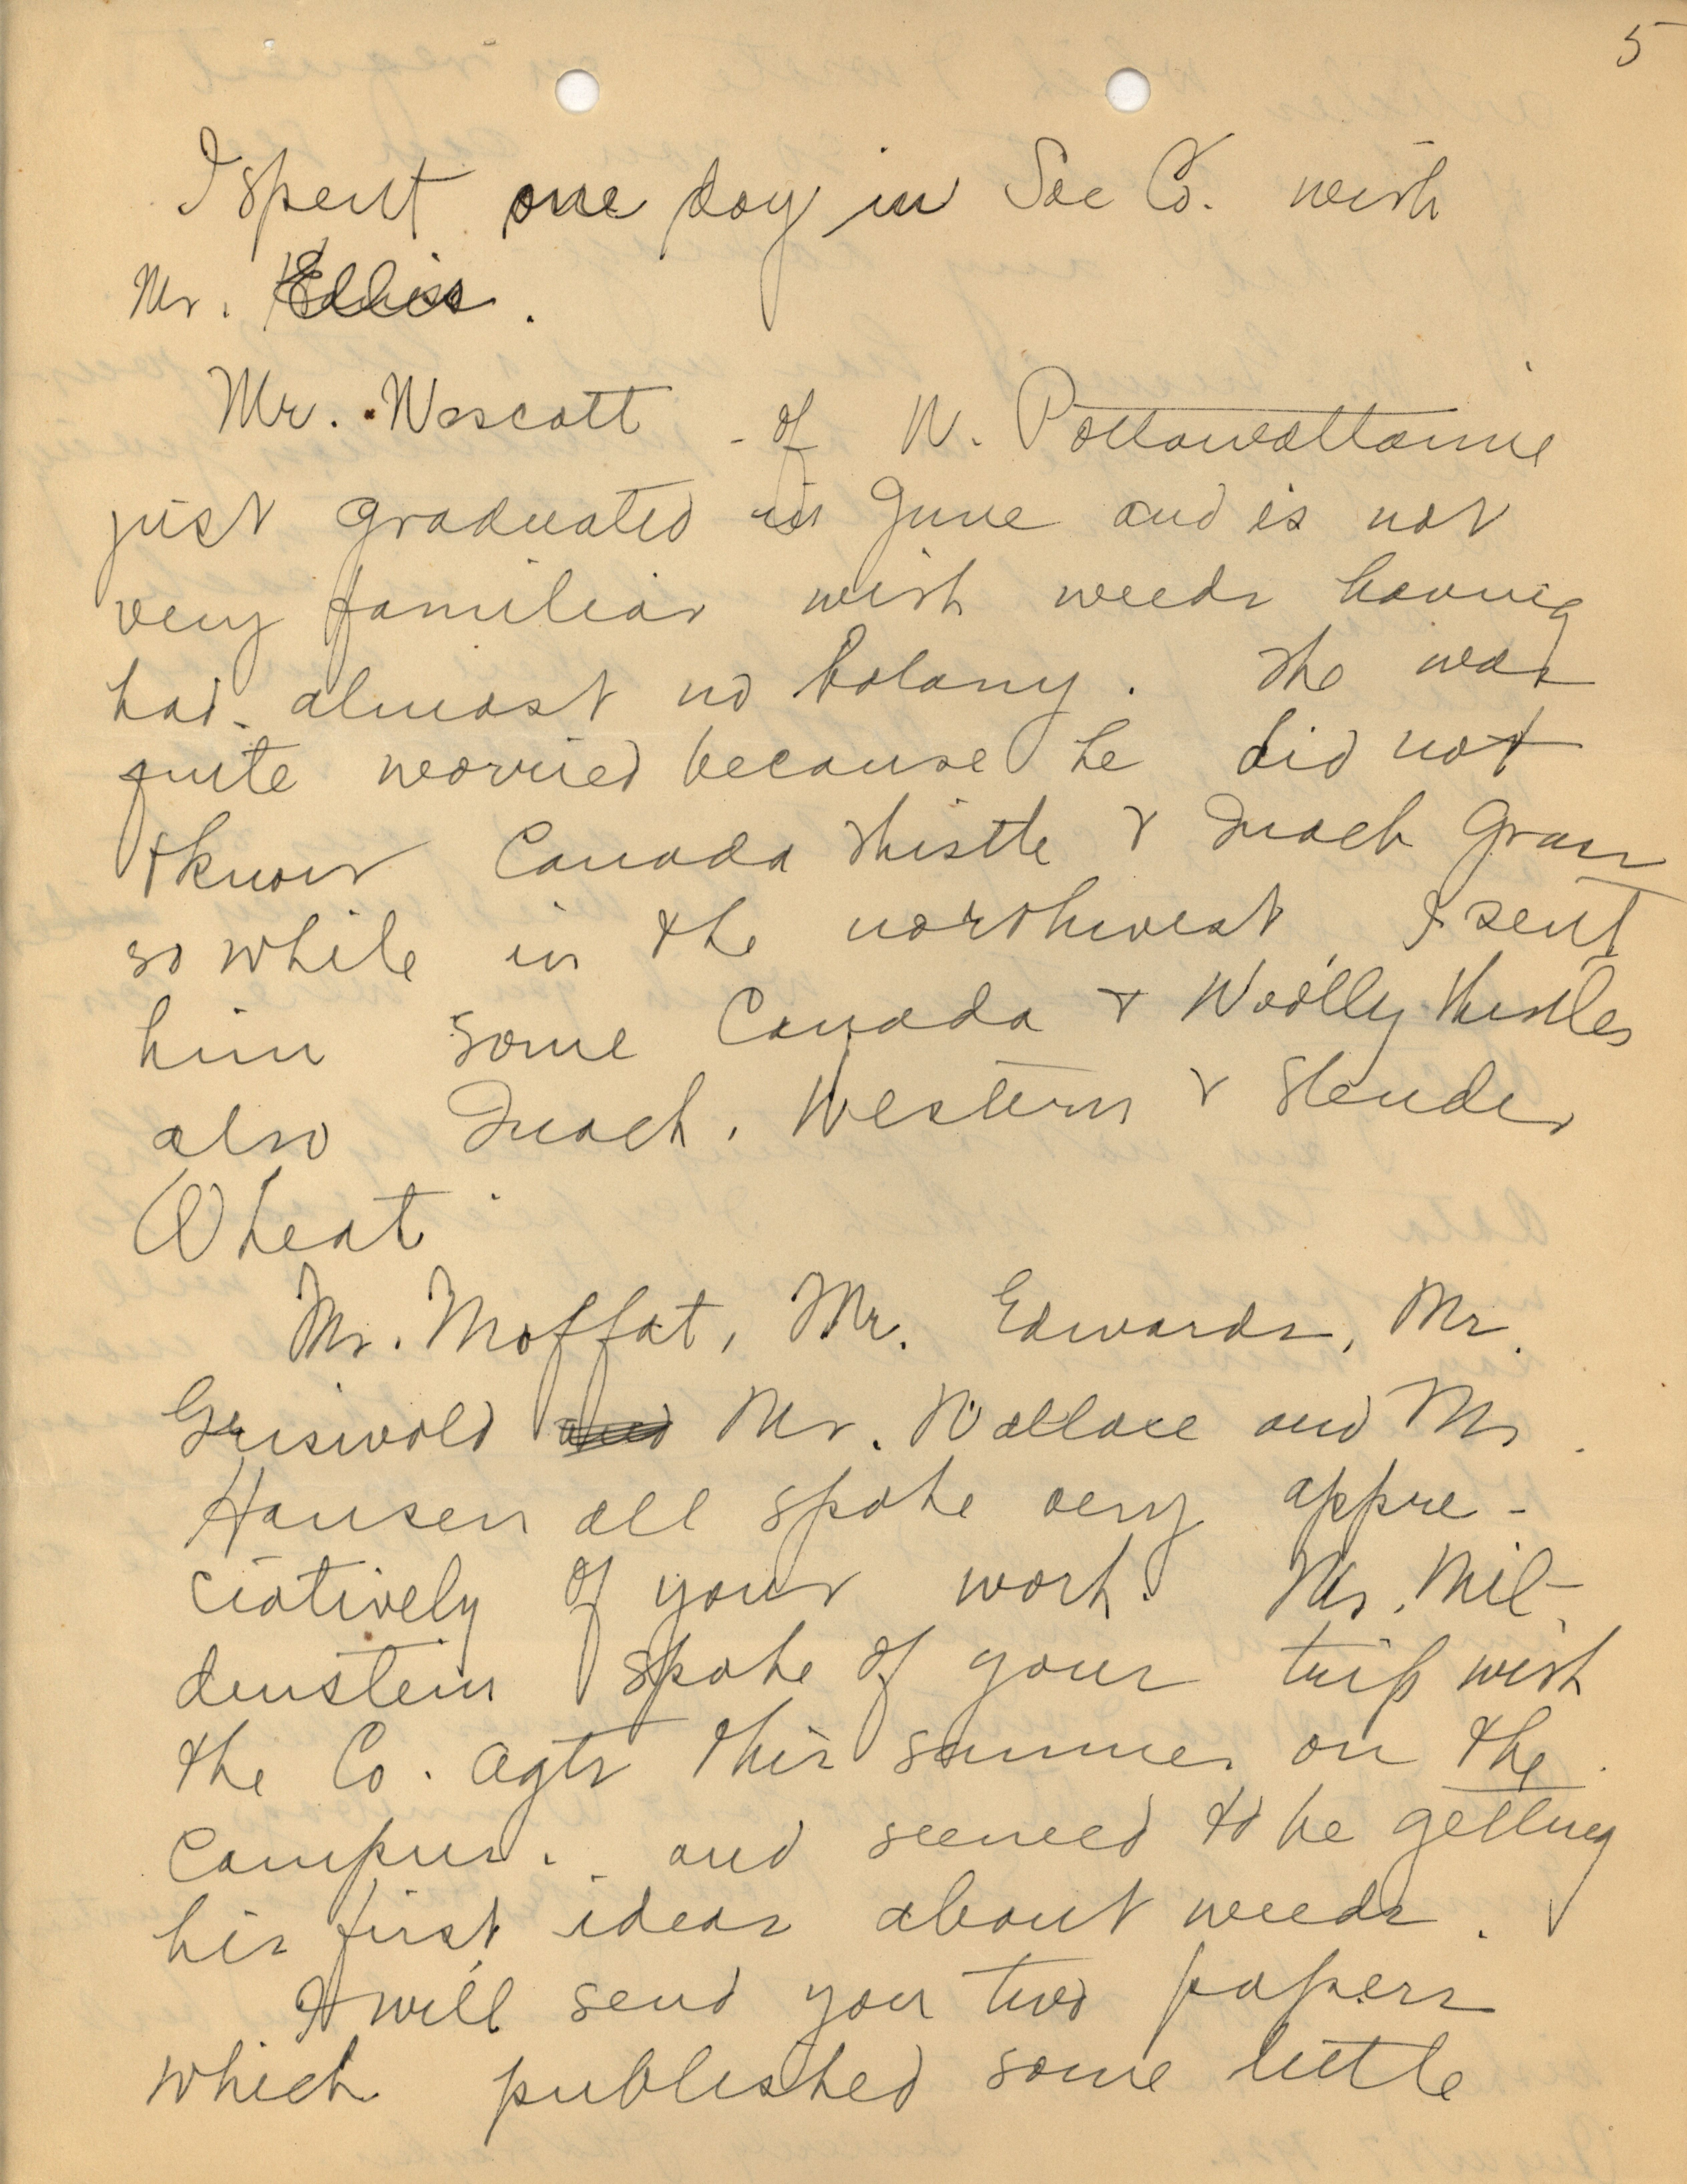 5
I spent one day in Sac Co. with
Mr. Ellis.
Mr. Wescott of W. Pottawattamie
just graduated in June and is not
very familiar with weeds having
had almost no botany. He was
quite worried because he did not
know Canada thistle & Quack Grass
so while in the northwest I sent
him some Canada & Woolly thistles
also Quack, Western & Slender
Wheat.
Mr. Moffat, Mr. Edwards, Mr.
Griswold and Mr. Wallace and Mr.
Hansen all spoke very appre-
ciatively of your work. Mr. Mil-
denstein spoke of your trip with
the Co. Agts this summer on the
campus. and seemed to be getting
his first ideas about weeds.
I will send you two papers
which published some little